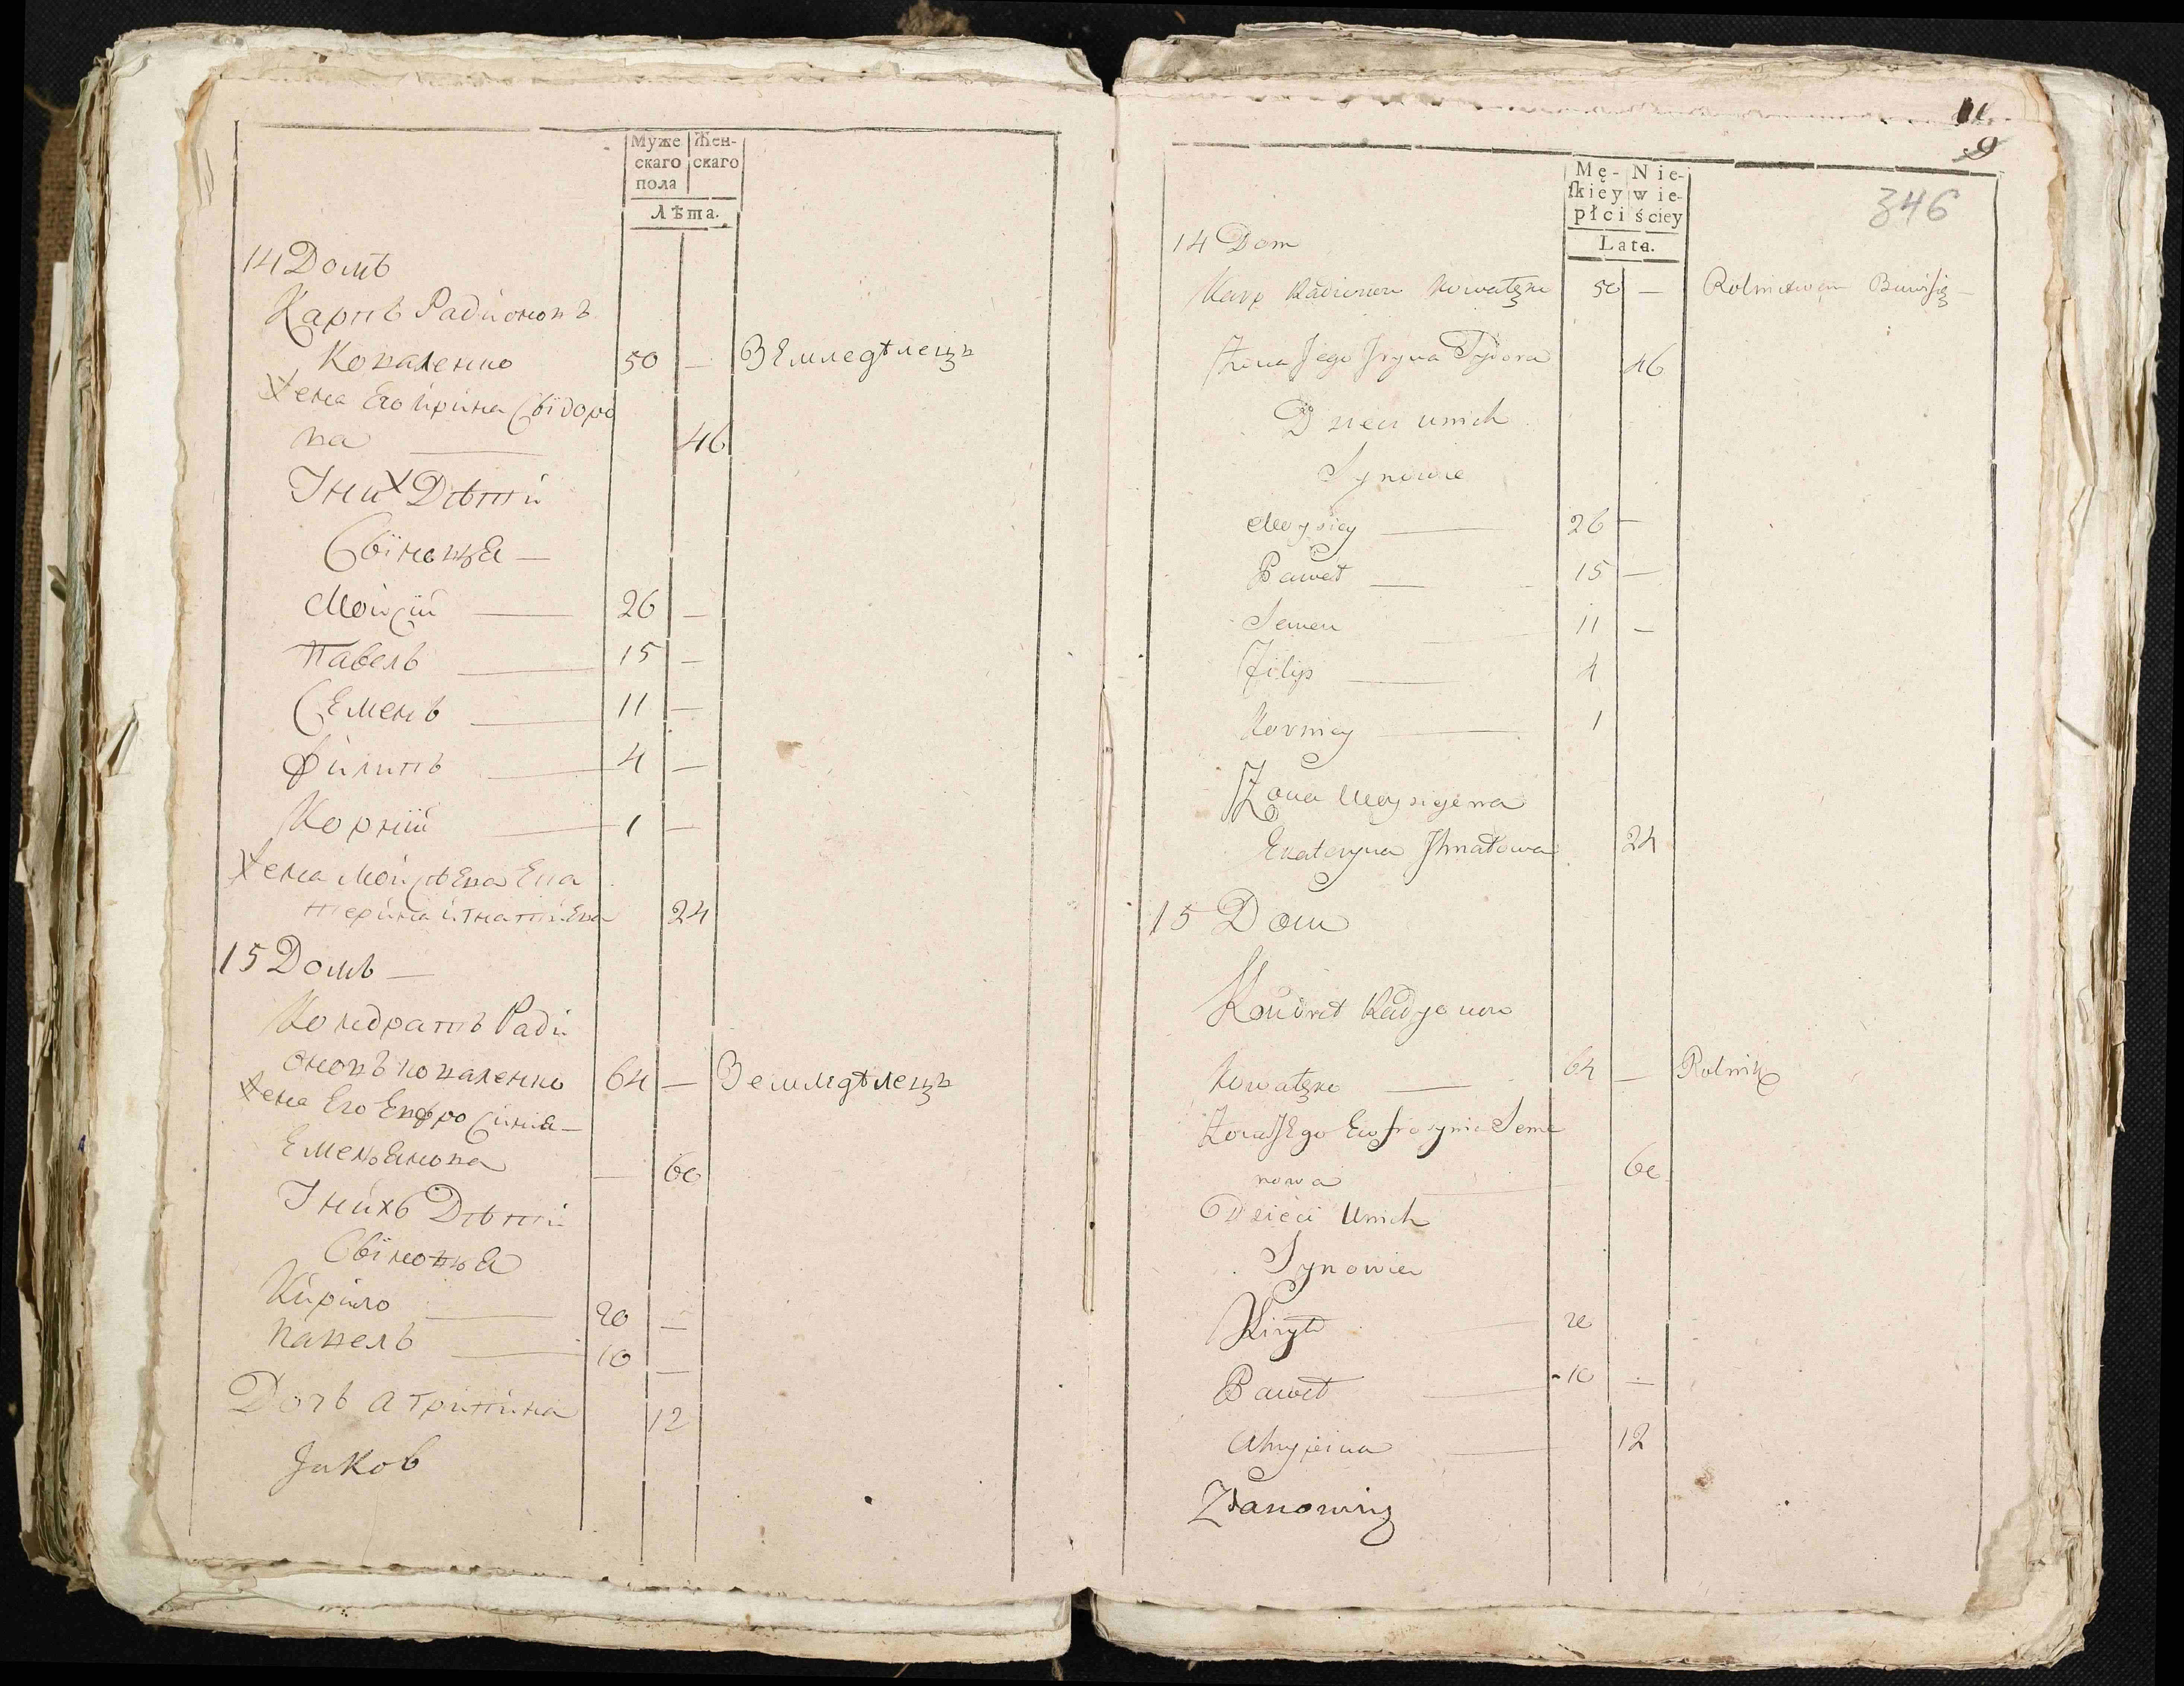 Муже Жен-
скаго скаго
пола
Лѣта.
14 Домъ
Карпъ Радионовъ
Коваленко 50 — Земледѣлецъ
Жена Его Ирина Свїдоро
ва — 46
У них Дѣтти
Сыновья —
Мойсїй — 26 —
Павелъ — 15 —
Семенъ — 11 —
Филипъ — 4 —
Корнїй — 1 —
Жена Мойсѣева Ека
терина игнатиева 24
15 Домъ —
Кондратъ Ради
оновъ коваленко 64 — Земледѣлецъ
Жена Его Евфросиния —
Емельянова — 60
У нихъ Дѣтти
Сыновья
Кирило — 20 —
Павелъ — 10 —
Дочъ агрипина 12
Jaкоб
11
9
346
Mę- Nie-
ſkiey wie-
płci ściey
Lata.
14 Dom
Karp Radionow Kowalęko 50 — Rolnictwem Bawiſię —
Żona Jego Iryna Sydora 46
Dzieci unich
Synowie
Moysiey — 26 —
Paweł — 15 —
Semen 11 —
Filip — 4
Korniey — 1
Żona Moysiyewa
Ekateryna Ihnatowa 24
15 Dom
Kondrat Radyonow
Kowalęko — 64 — Rolnik
Żona JEgo Ewfrosynia Seme
nowa — 60
Dzieci Unich
Synowie
Kiryło — 20
Paweł — 10 —
Ahrypina — 12